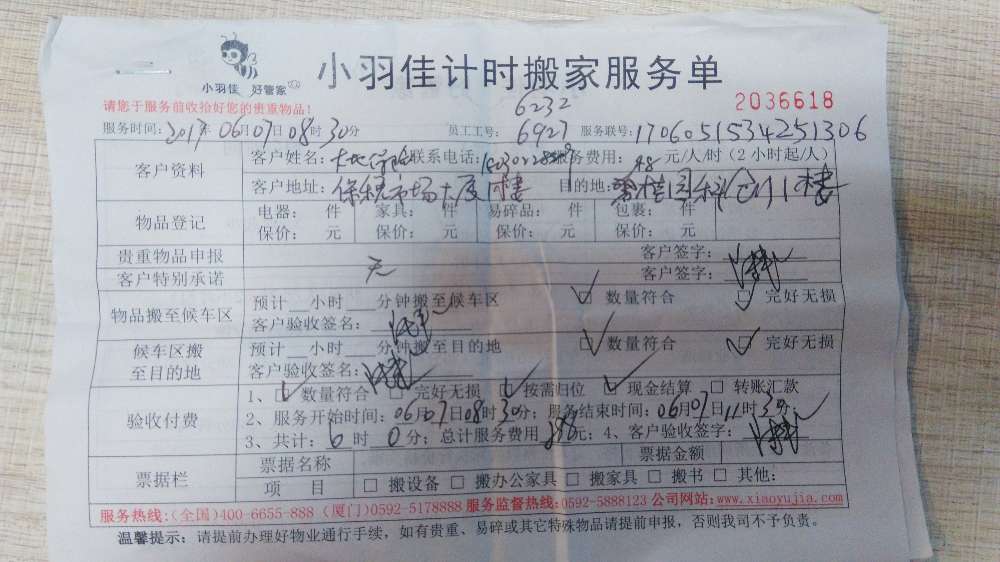 小羽佳 好管家
小羽佳计时搬家服务单
请您于服务前收拾好您的贵重物品!
6232
2036618
服务时间:2017年06月07日08时30分 员工工号: 6927 服务联号:1706051534251306
客户资料
客户姓名: 联系电话: 服务费用:48元/人/时(2小时起/人)
客户地址:保税市场大厦 楼 目的地: 桂园 楼
物品登记
电器: 件 家具: 件 易碎品: 件 包裹: 件
保价: 元 保价: 元 保价: 元 保价: 元
贵重物品申报 客户签字:
无
客户特别承诺 客户签字:
物品搬至候车区
预计__小时___分钟搬至候车区 □ 数量符合 □ 完好无损
客户验收签名:
候车区搬至目的地
预计__小时___分钟搬至目的地 □ 数量符合 □ 完好无损
客户验收签名:
验收付费
1、□ 数量符合 □ 完好无损 □ 按需归位 □ 现金结算 □ 转账汇款
2、服务开始时间:06月07日08时30分; 服务结束时间:06月07日11时30分
3、共计:6时0分; 总计服务费用288元; 4、客户验收签字:
票据栏
票据名称 票据金额
项 目 □ 搬设备 □ 搬办公家具 □ 搬家具 □ 搬书 □ 其他:
服务热线:(全国)400-6655-888 (厦门)0592-5178888 服务监督热线:0592-5888123 公司网站:www.xiaoyujia.com
温馨提示: 请提前办理好物业通行手续,如有贵重、易碎或其它特殊物品请提前申报,否则我司不予负责。